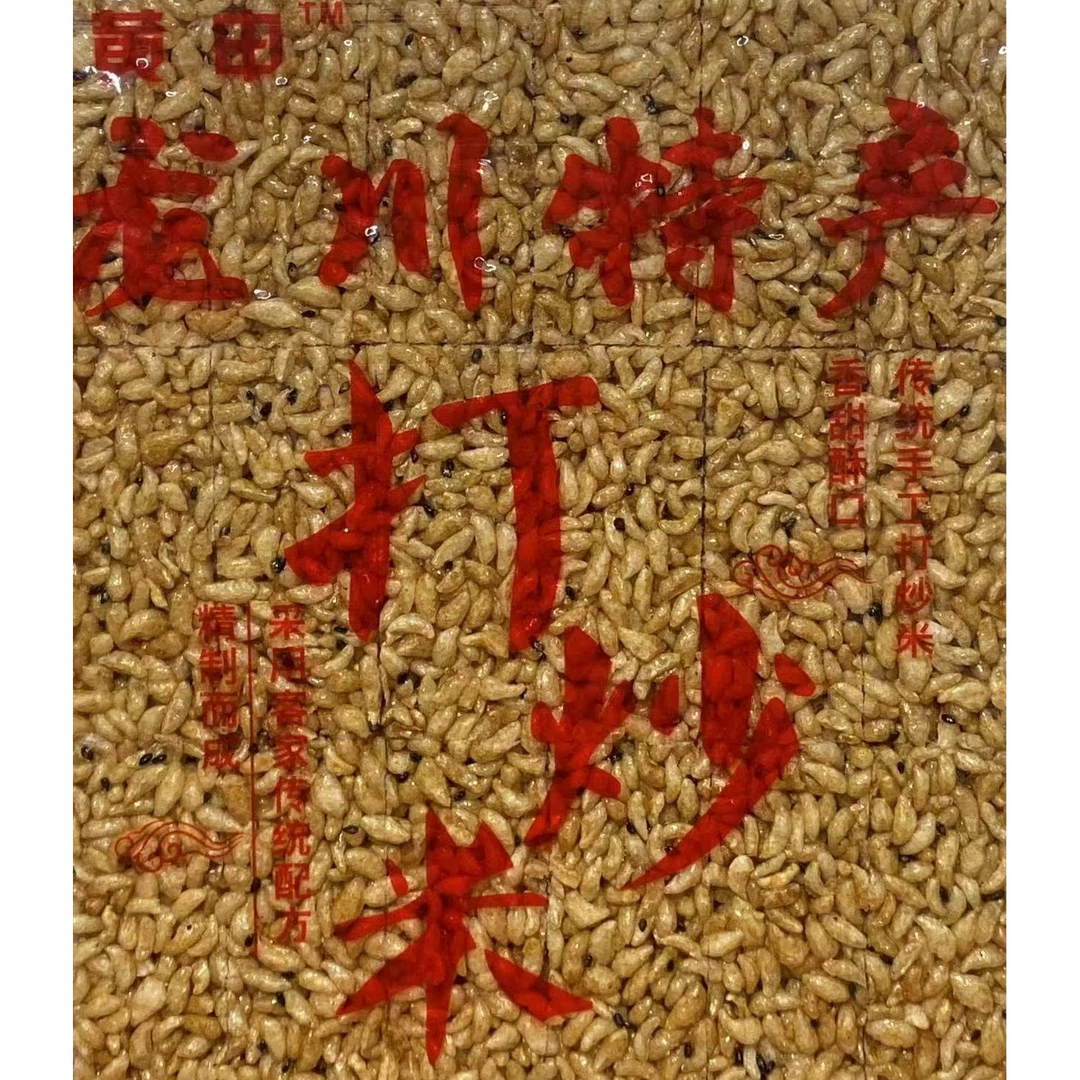 黄田™
龙川特产
打炒米
传统手工打炒米
香甜酥口
采用客家传统配方
精制而成